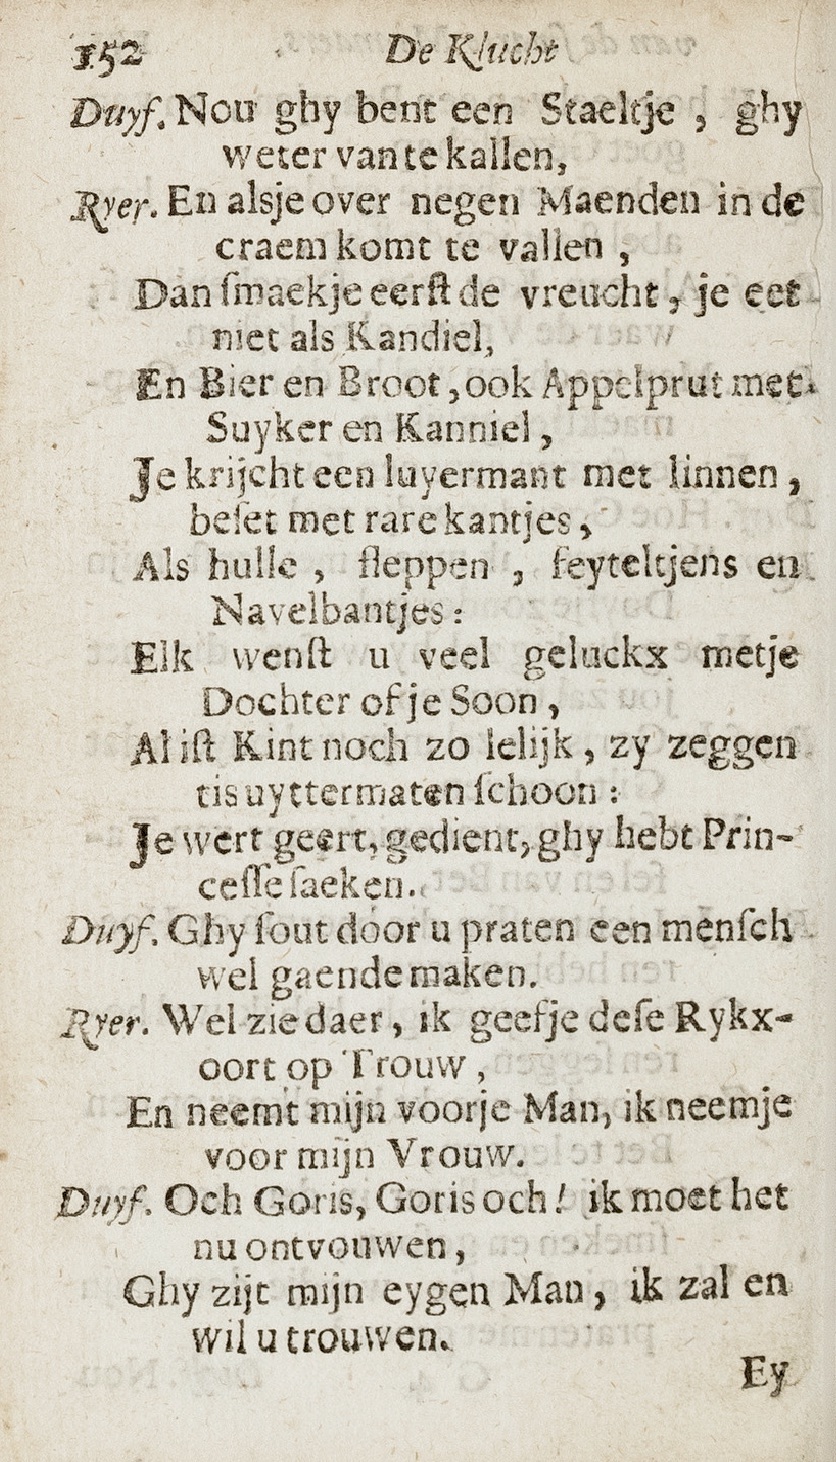 152 De Klucht
Duyf. Nou ghy bent een Staeltje , ghy
weter van te kallen,
Ryer. En alsje over negen Maenden in de
craem komt te vallen ,
Dan ſmaekje eerſt de vreucht, je eet
niet als Kandiel,
En Bier en Broot, ook Appelprut met
Suyker en Kanniel ,
Je krijcht een luyermant met linnen ,
beſet met rare kantjes,
Als hulle , ſleppen , feyteltjens en
Navelbantjes :
Elk wenſt u veel geluckx metje
Dochter of je Soon ,
Al iſt Kint noch zo lelijk , zy zeggen
tis uyttermaten ſchoon :
Je wert geert, gedient, ghy hebt Prin-
ceſſe ſaeken.
Duyf. Ghy ſout door u praten een menſch
wel gaende maken.
Ryer. Wel zie daer , ik geefje deſe Rykx-
oort op Trouw ,
En neemt mijn voorje Man, ik neemje
voor mijn Vrouw.
Duyf. Och Goris, Goris och! ik moet het
nu ontvouwen ,
Ghy zijt mijn eygen Man , ik zal en
wil u trouwen.
Ey